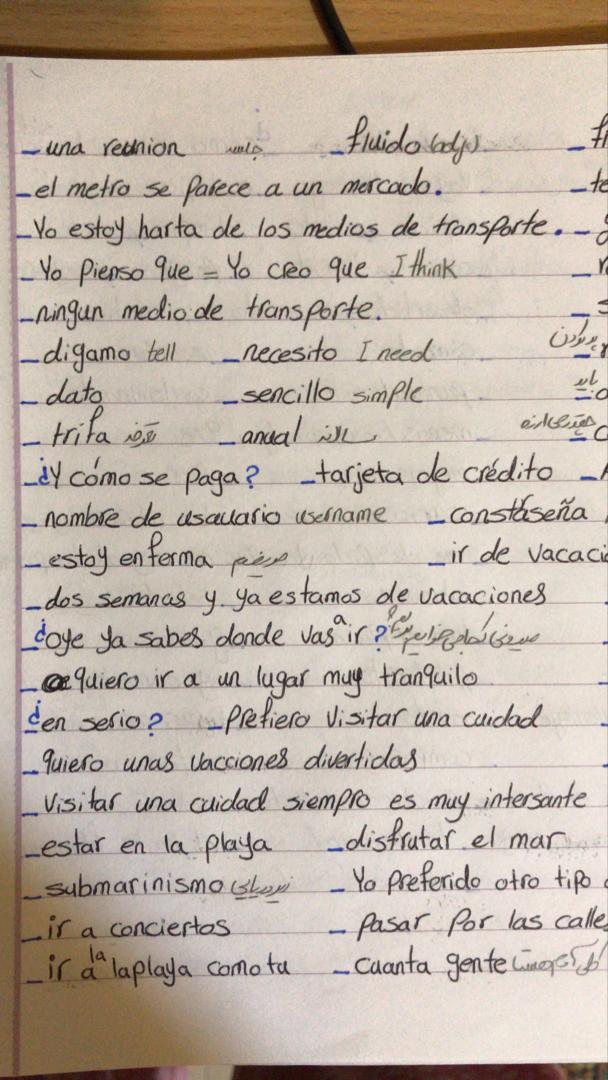 _ una reunion جلسه _ fluido (adj)
_ el metro se parece a un mercado.
_ Yo estoy harta de los medios de transporte. _
_ Yo Pienso que = Yo creo que I think
_ ningun medio de transporte.
_ digamo tell _ necesito I need
_ dato _ sencillo simple باید
_ trifa تعرفه _ anual سالانه
_ ¿Y cómo se paga? _ tarjeta de crédito
_ nombre de usauario username _ constáseña
_ estoy enferma مریضم _ ir de vacaci
_ dos semanas y ya estamos de vacaciones
_ ¿oye ya sabes donde vas a ir?
_ quiero ir a un lugar muy tranquilo
¿en serio? _ Prefiero visitar una cuidad
_ quiero unas vacciones divertidas
_ visitar una cuidad siempro es muy intersante
_ estar en la playa _ disfrutar el mar
_ submarinismo زیردریایی _ Yo preferido otro tipo
_ ir a conciertos _ Pasar Por las calle
_ ir a la laplaya como tu _ cuanta gente